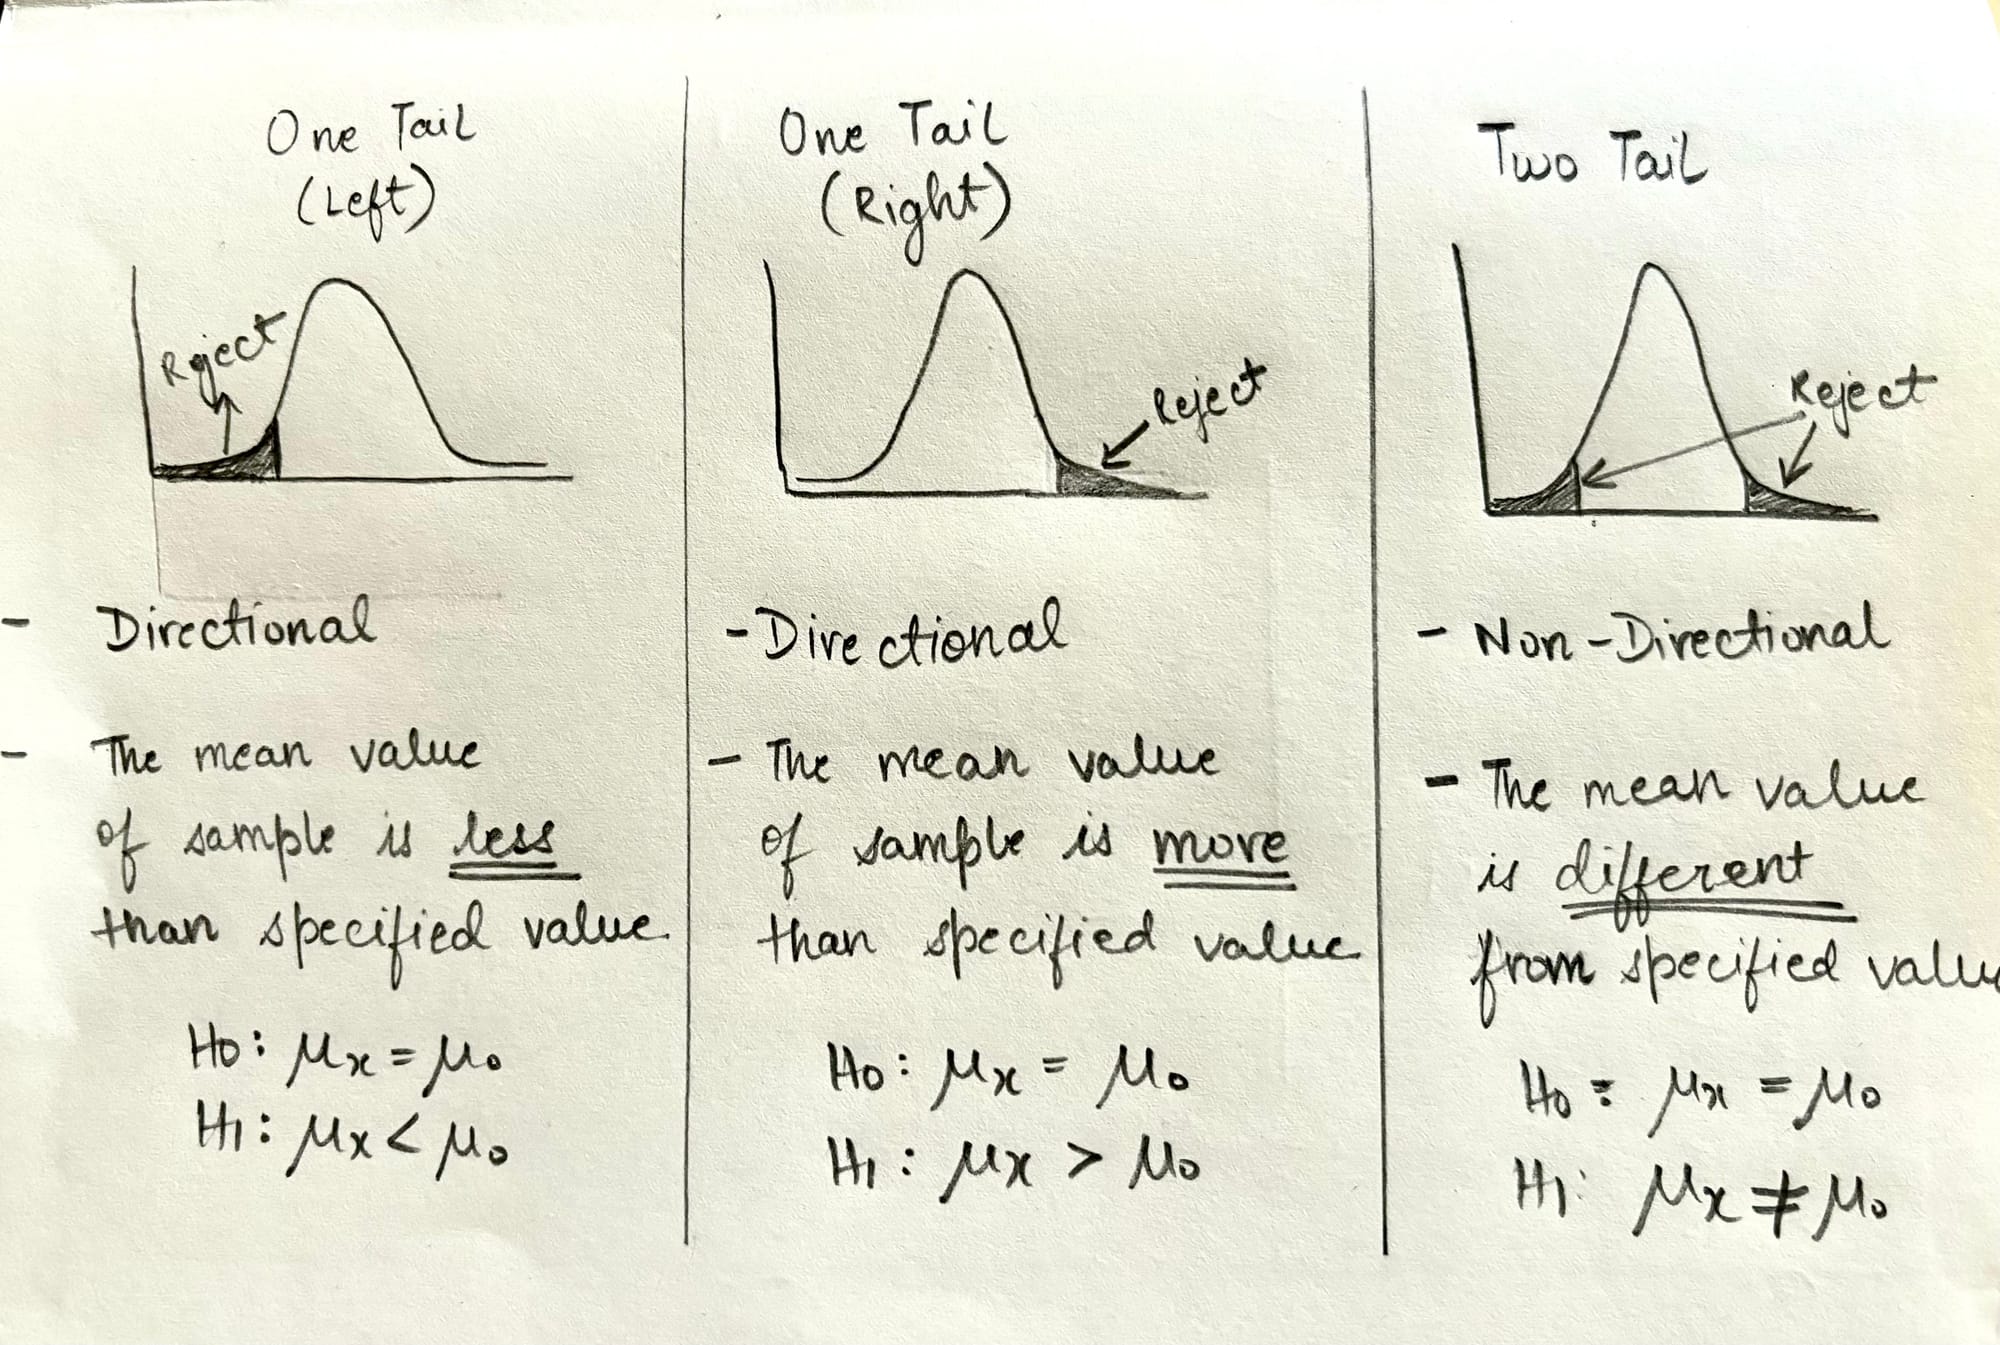 One Tail
(Left)
Reject
- Directional
- The mean value
of sample is less
than specified value.
H0: μx = μ0
H1: μx < μ0
One Tail
(Right)
Reject
- Directional
- The mean value
of sample is more
than specified value
H0: μx = μ0
H1: μx > μ0
Two Tail
Reject
- Non-Directional
- The mean value
is different
from specified value
H0: μx = μ0
H1: μx ≠ μ0